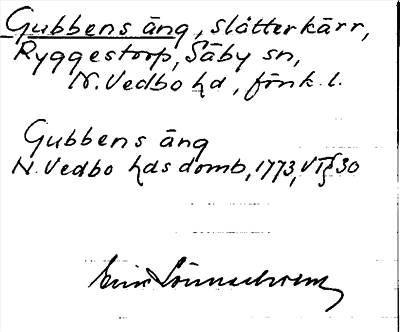 Gubbens äng, slåtterkärr,
Ryggestorp, Säby sn,
N. Vedbo hd, Jönk. l.
Gubbens äng
N. Vedbo hds domb, 1773, VT § 30